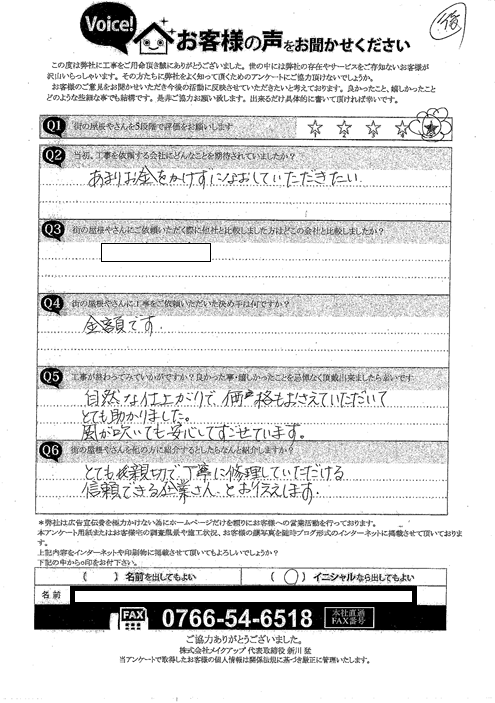 Voice!
お客様の声をお聞かせください
この度は弊社に工事をご用命頂き誠にありがとうございました。世の中には弊社の存在やサービスをご存知ないお客様が
沢山いらっしゃいます。その方たちに弊社をよく知って頂くためのアンケートにご協力頂けないでしょうか。
お客様のご意見をお聞かせいただき今後の活動に反映させていただきたいと考えております。良かったこと、嬉しかったこと
どのような些細な事でも結構です。是非ご協力お願い致します。出来るだけ具体的に書いて頂ければ幸いです。
Q1 街の屋根やさんを5段階で評価をお願いします ☆ ☆ ☆ ☆ ★
Q2 当初、工事を依頼する会社にどんなことを期待されていましたか？
あまりお金をかけずになおしていただきたい
Q3 街の屋根やさんにご依頼いただく際に他社と比較しました方はどこの会社と比較しましたか？
Q4 街の屋根やさんに工事をご依頼いただいた決め手は何ですか？
金額です
Q5 工事が終わってみていかがですか？良かった事・嬉しかったことを忌憚なく頂戴出来ましたら幸いです
自然な仕上がりで、価格もおさえていただいて
とても助かりました。
風が吹いても安心してすごせています。
Q6 街の屋根やさんを他の方に紹介するとしたらなんと紹介しますか？
とても親切で、丁寧に修理していただける
信頼できる企業さん とお伝えします
＊弊社は広告宣伝費を極力かけない為にホームページだけを頼りにお客様への営業活動を行っております。
本アンケート用紙またはお客様宅の調査風景や施工状況、お客様の顔写真を随時ブログ形式のインターネットに掲載させて頂いておりま
す。
上記内容をインターネットや印刷物に掲載させて頂いてもよろしいでしょうか？
下記の中から○印をお付下さい。
（ ）名前を出してもよい （○）イニシャルなら出してもよい
名前
FAX 0766-54-6518 本社直通 FAX番号
ご協力ありがとうございました。
株式会社メイクアップ 代表取締役 新川 猛
当アンケートで取得したお客様の個人情報は関係法規に基づき厳正に管理いたします。